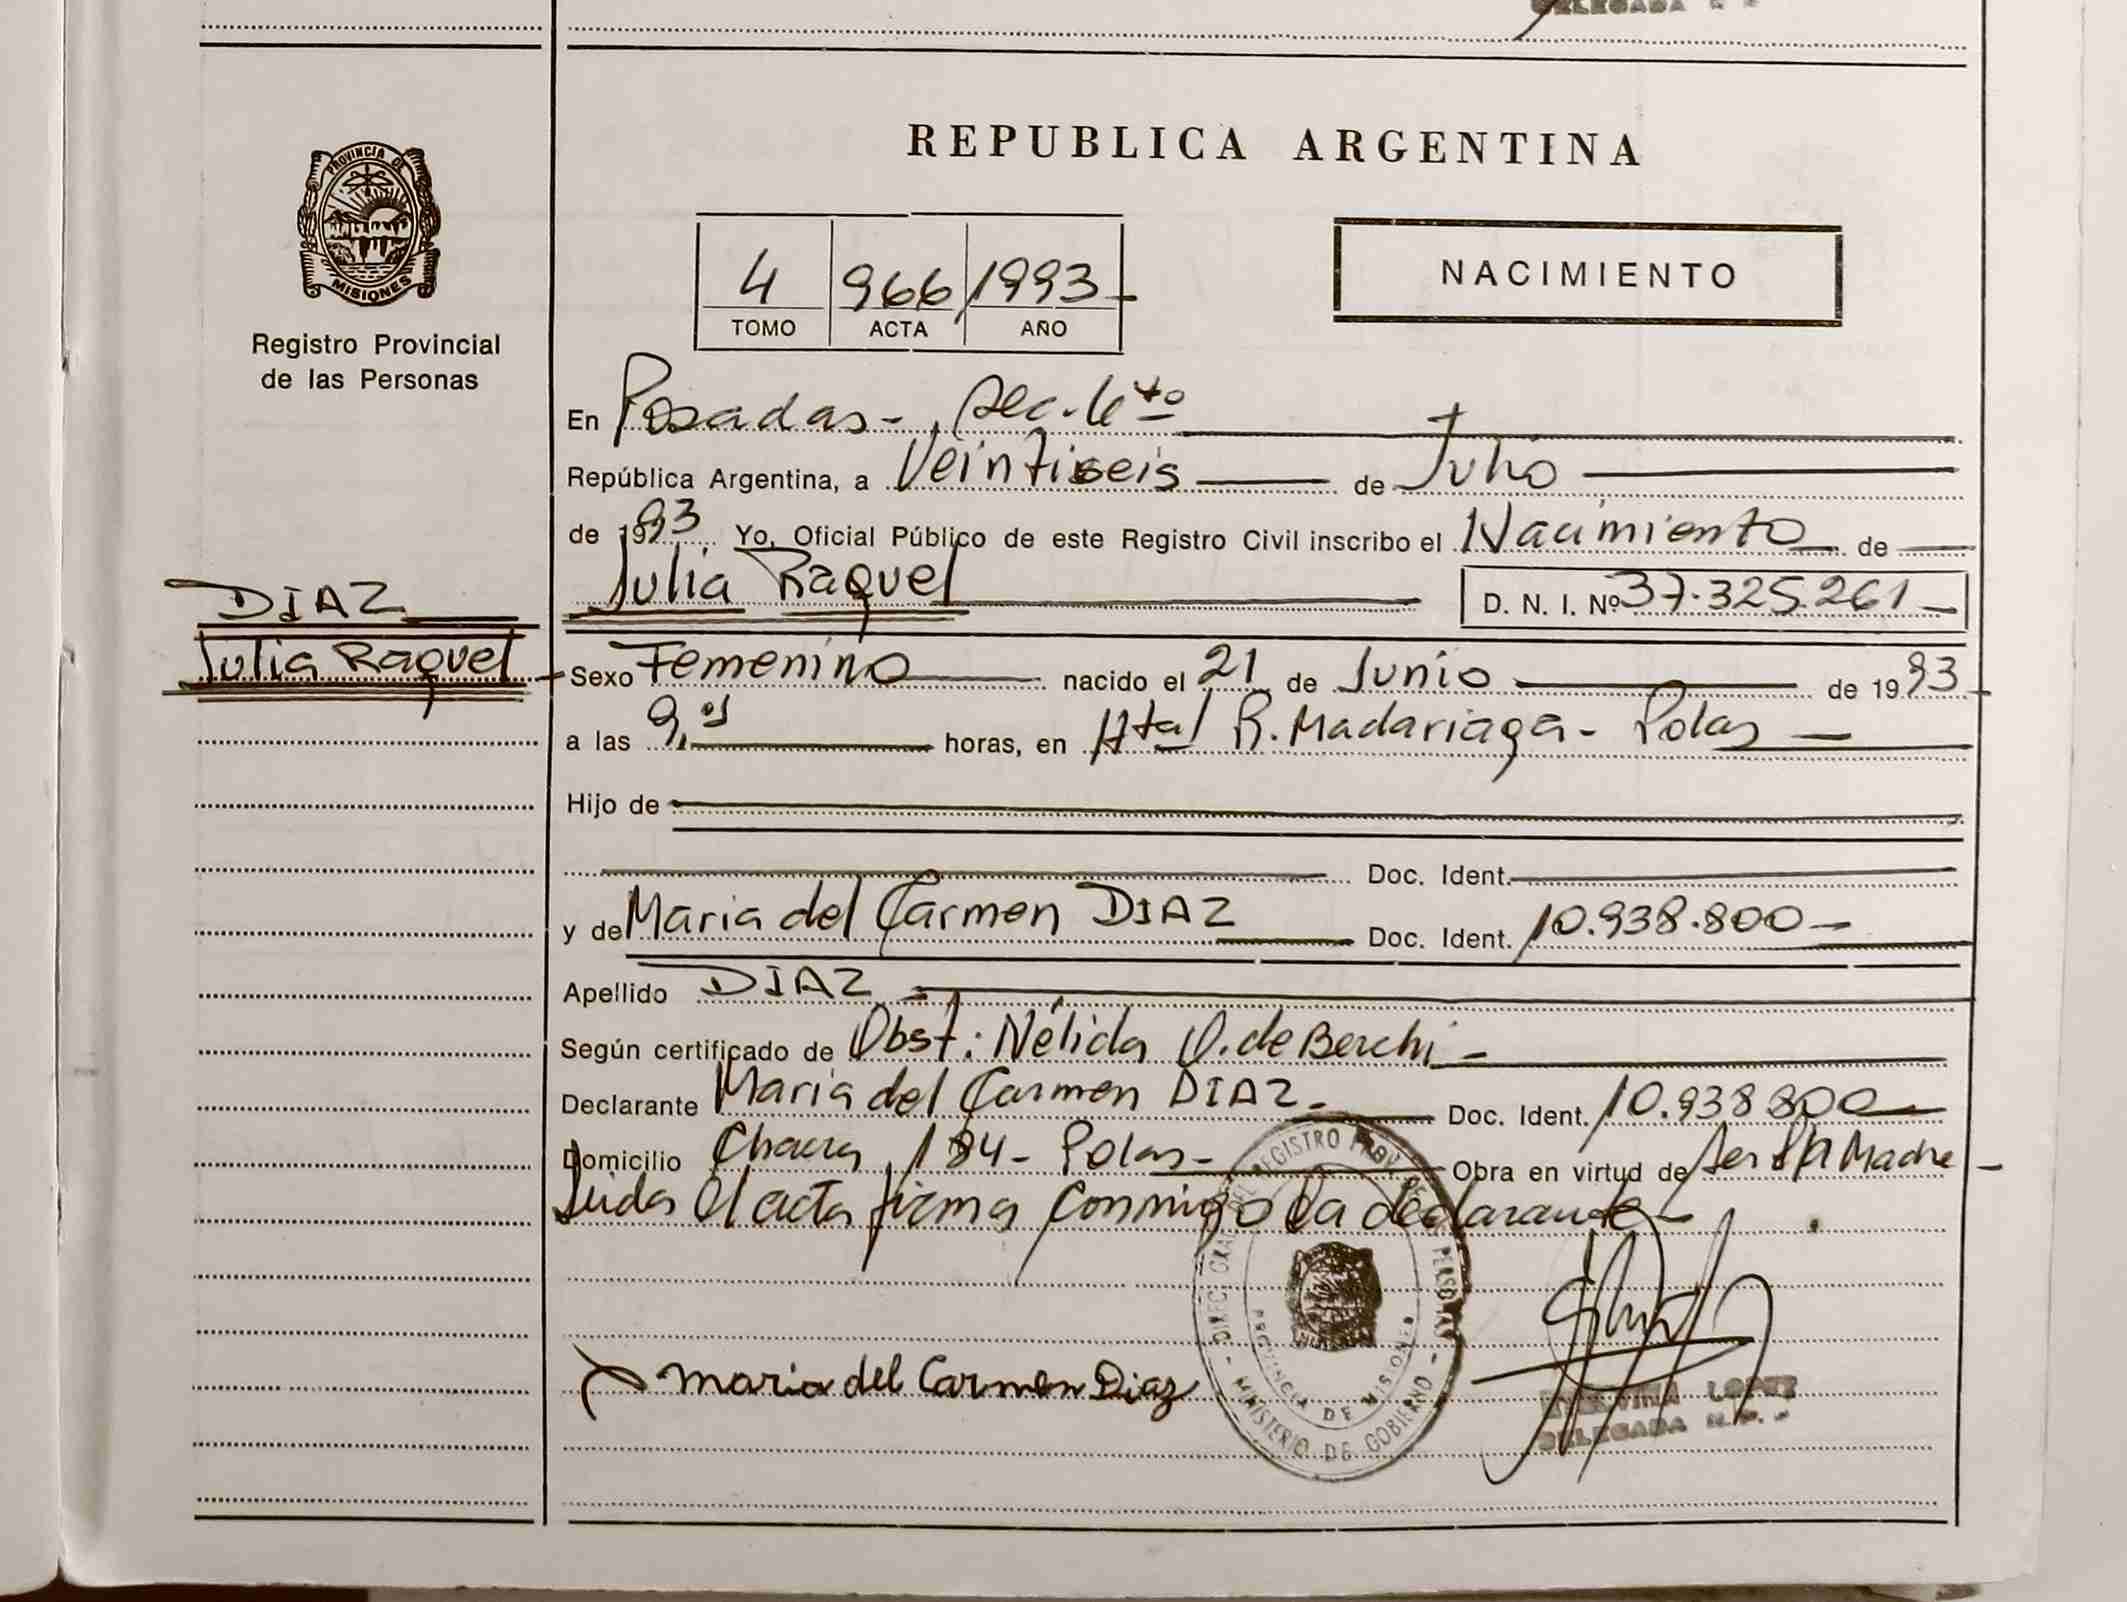 DELEGADA
REPUBLICA ARGENTINA
PROVINCIA DE
MISIONES
Registro Provincial
de las Personas
4 966 1993
TOMO ACTA AÑO
NACIMIENTO
En Posadas - Sec. 4to
República Argentina, a Veintiseis de Julio
de 1993 Yo, Oficial Público de este Registro Civil inscribo el Nacimiento de
Julia Raquel D. N. I. Nº 37.325.261
DIAZ
Julia Raquel
Sexo Femenino nacido el 21 de Junio de 1993
a las 9, horas, en Htal R. Madariaga - Pdas
Hijo de
Doc. Ident.
y de Maria del Carmen DIAZ Doc. Ident. 10.938.800
Apellido DIAZ
Según certificado de Obst: Nélida O. de Berchi
Declarante Maria del Carmen DIAZ Doc. Ident. 10.938.800
Domicilio Chacra 184 - Pdas - Obra en virtud de Ser la Madre
Leida el acta firma conmigo la declarante
Maria del Carmen Diaz
REGISTRO PROV. DE LAS PERSONAS
PROVINCIA DE MISIONES
MINISTERIO DE GOBIERNO
LOPEZ
DELEGADA